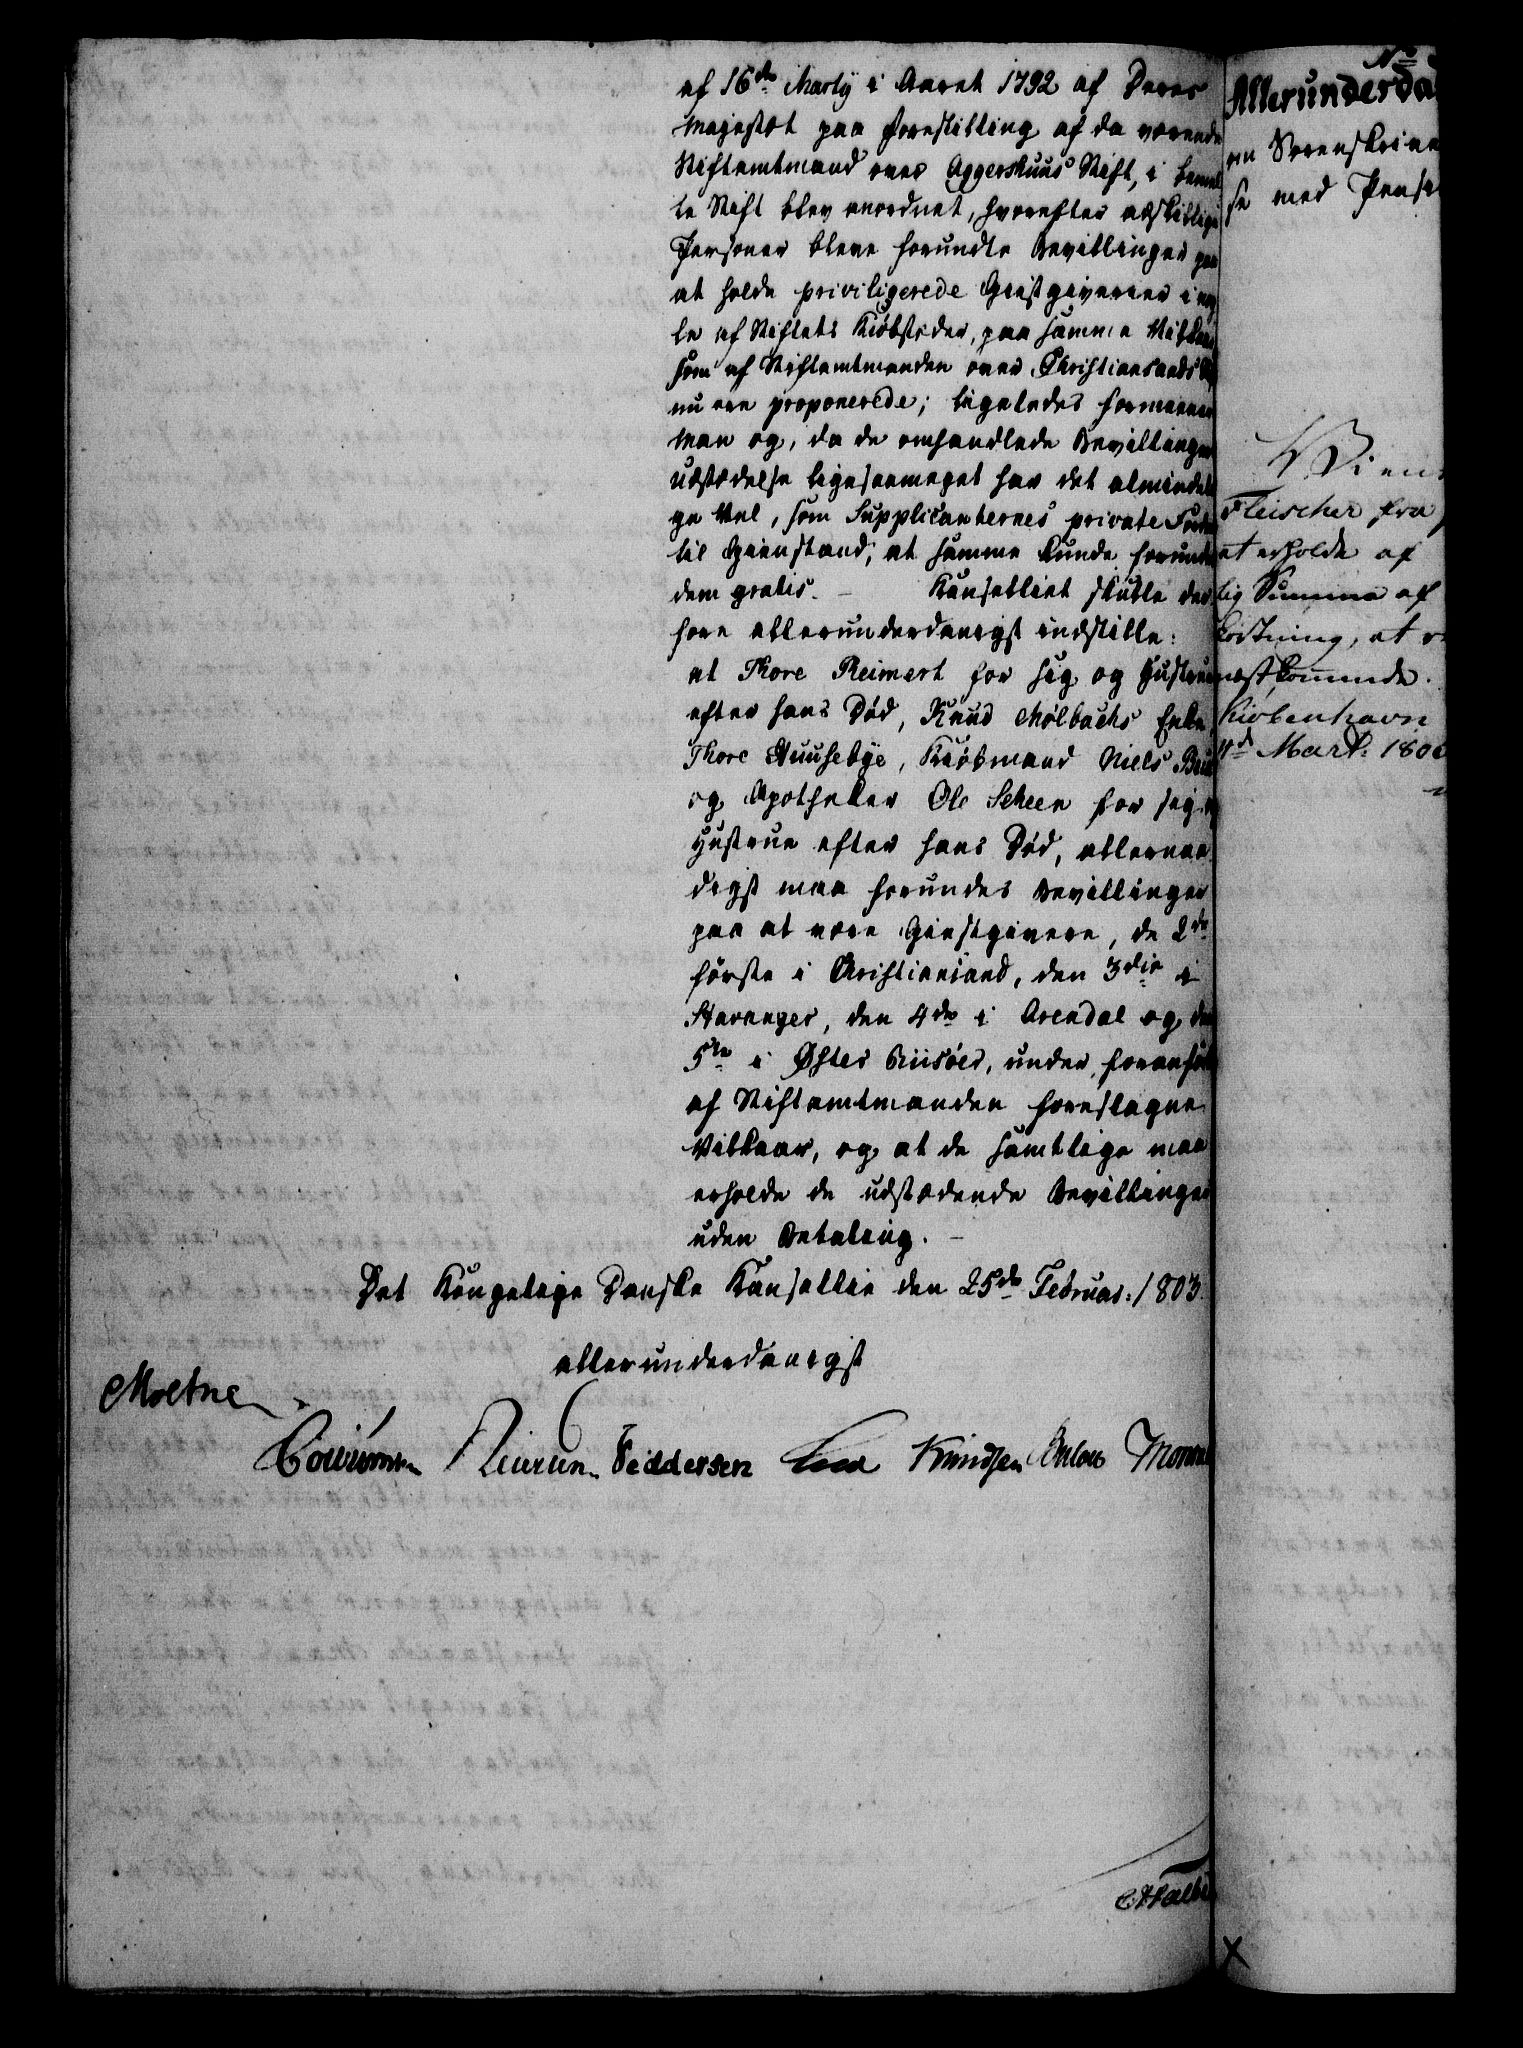 af 16de Martij i Aaret 1792 af Deres
Majestæt paa Forestilling af da værende
Stiftamtmand over Aggershuus Stift, i bemel
te Stift blev anordnet, hvorefter adskillige
Personer bleve forundte Bevillinger paa
at holde priviligerede Giestgiverier i nog
le af Stiftets Kiøbstæder, paa samme Vilkaar
som af Stiftamtmanden over Christiansands
nu ere proponerede; ligeledes formeener
man og, da de omhandlede Bevillingers
udstædelse ligesaameget har det almindeli
ge Vel, som Supplicanternes private Fordeel
til Gienstand, at samme kunde forundes
dem gratis. – Kanselliet skulle der
fore allerunderdanigst indstille:
at Thore Reimert for sig og Hustrue
efter hans Død, Knud Mølbachs Enke
Thore Huusebye, Kiøbmand Niels
og Apotheker Ole Scheen for sig og
Hustrue efter hans Død, allernaa
digst maa forundes Bevillinger
paa at være Giestgivere, de 2de
første i Christiansand, den 3die i
Stavanger, den 4de i Arendal og den
5te i Øster Riisöer, under foranførte
af Stiftamtmanden foreslagne
Vilkaar, og at de samtlige maa
erholde de udstædende Bevillinger
uden Betaling. –
Det Kongelige Danske Kansellie den 25de Februar: 1803.
allerunderdanigst
Moltke
Feddersen Knudsen
No
Allerunderda
Sorenskriver
se med Pensi
Fleischer fra
at erholde af
lig Summa af
næstkommende.
Kiøbenhavn
4de Mart: 180